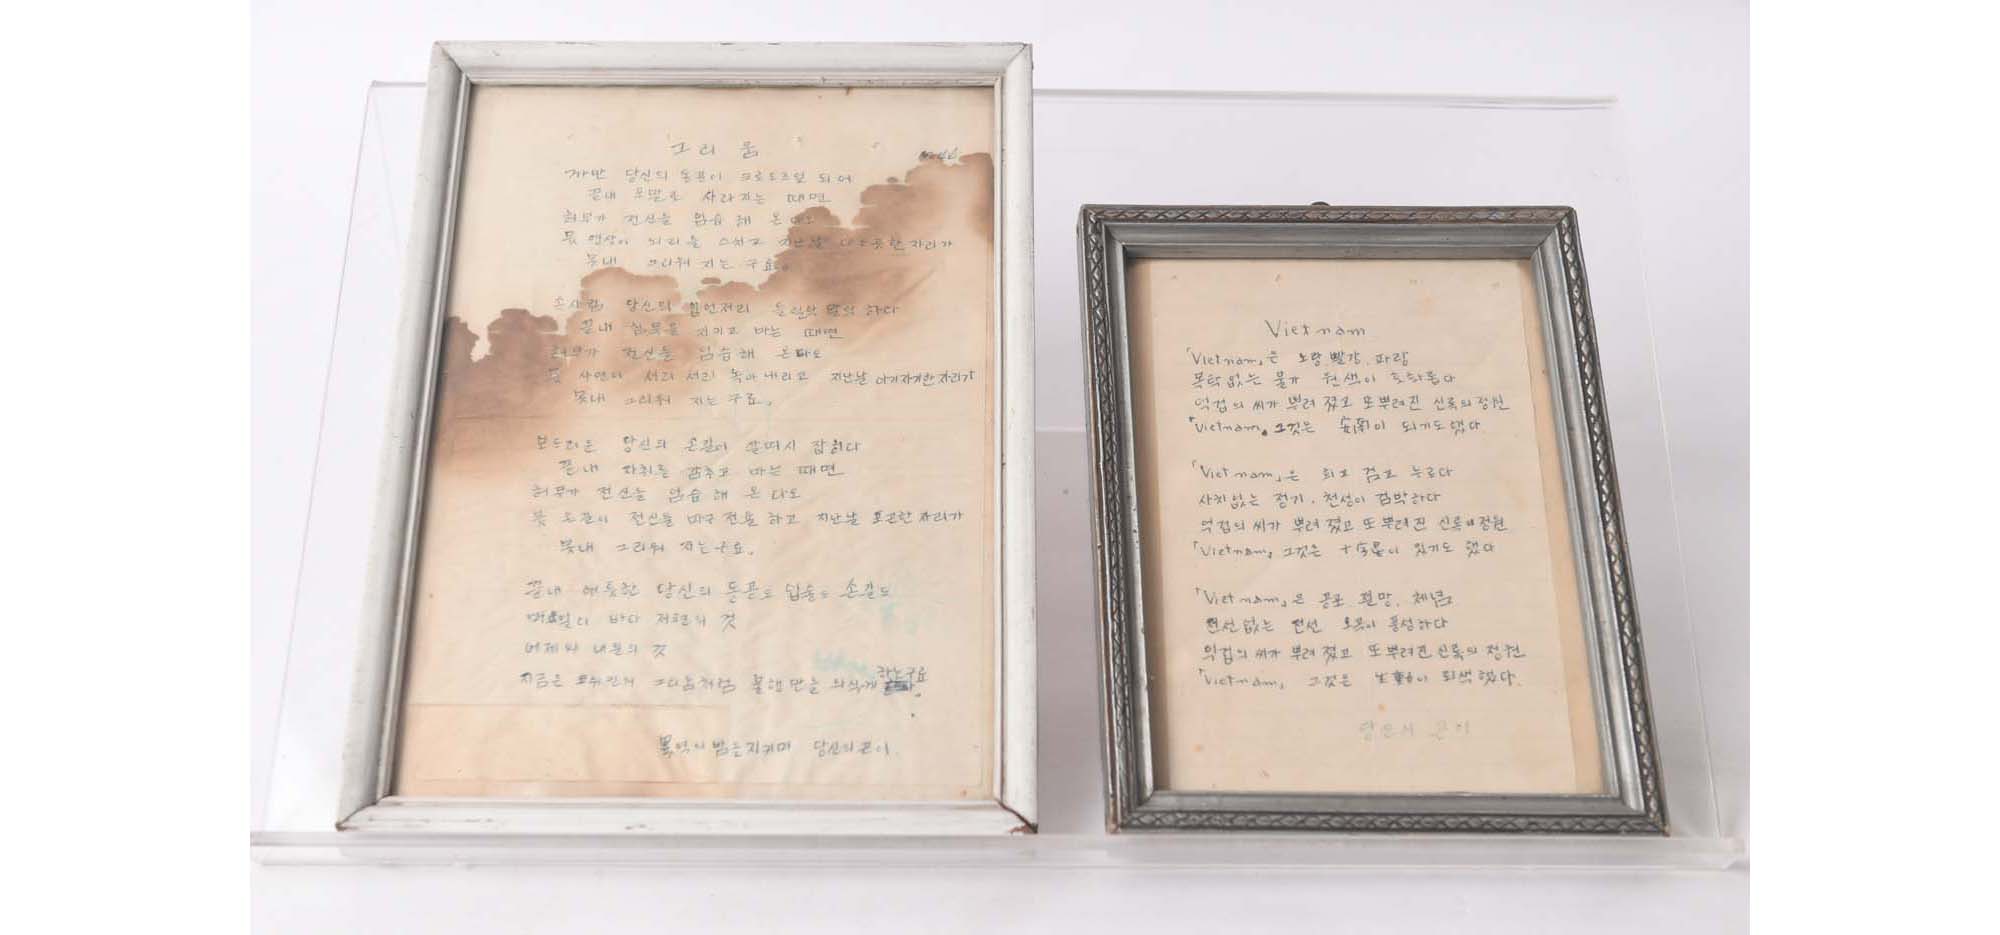 그리움
까만 당신의 동공이 크로즈엎 되어
끝내 모말로 사라지는 때면
허무가 전신을 엄습 해 온다오
뭇 영상이 뇌리를 스치고 지난날 다소곳한 자리가
못내 그리워 지는구료.
당신의
끝내 침묵을 지키고 마는 때면
허무가 전신을 엄습해 온다오
뭇 사연이 서리 서리 녹아내리고 지난날 아기자기한 자리가
못내 그리워 지는구료.
보드러운 당신의 손길이 살며시 잡히다
끝내 자취를 감추고 마는 때면
허무가 전신을 엄습 해 온다오
뭇 온끈이 전신을 마구 전율 하고 지난날 포근한 자리가
못내 그리워 지는구료.
끝내 애틋한 당신의 동공도 입술도 손길도
바다 저편의 것
어제와 내일의 것
지금은 그리움처럼 불행만을 의식케 하는구료
밤을 지키며 당신의 끈이.
Vietnam
「Vietnam」은 노랑, 빨강, 파랑
목탁없는 불가 원색이 호화롭다
억겁의 씨가 뿌려졌고 또 뿌려진 신록의 정원
「Vietnam」 그것은 安南이 되기도 했다
「Vietnam」은 희고 검고 누르다
사치없는 정기, 천성이 검박하다
억겁의 씨가 뿌려졌고 또 뿌려진 신록의 정원
「Vietnam」 그것은 十字星이 있기도 했다
「Vietnam」은 공포 절망, 체념
전선없는 전선 포목이 풍성하다
억겁의 씨가 뿌려졌고 또 뿌려진 신록의 정원
「Vietnam」 그것은 生動이 퇴색했다.